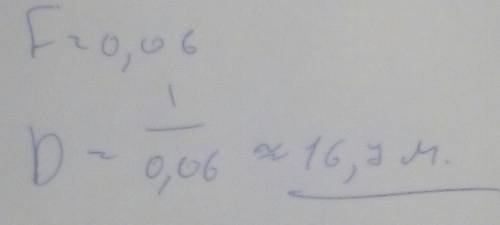 F = 0,06
D = 1/0,06 ≈ 16,7 м.